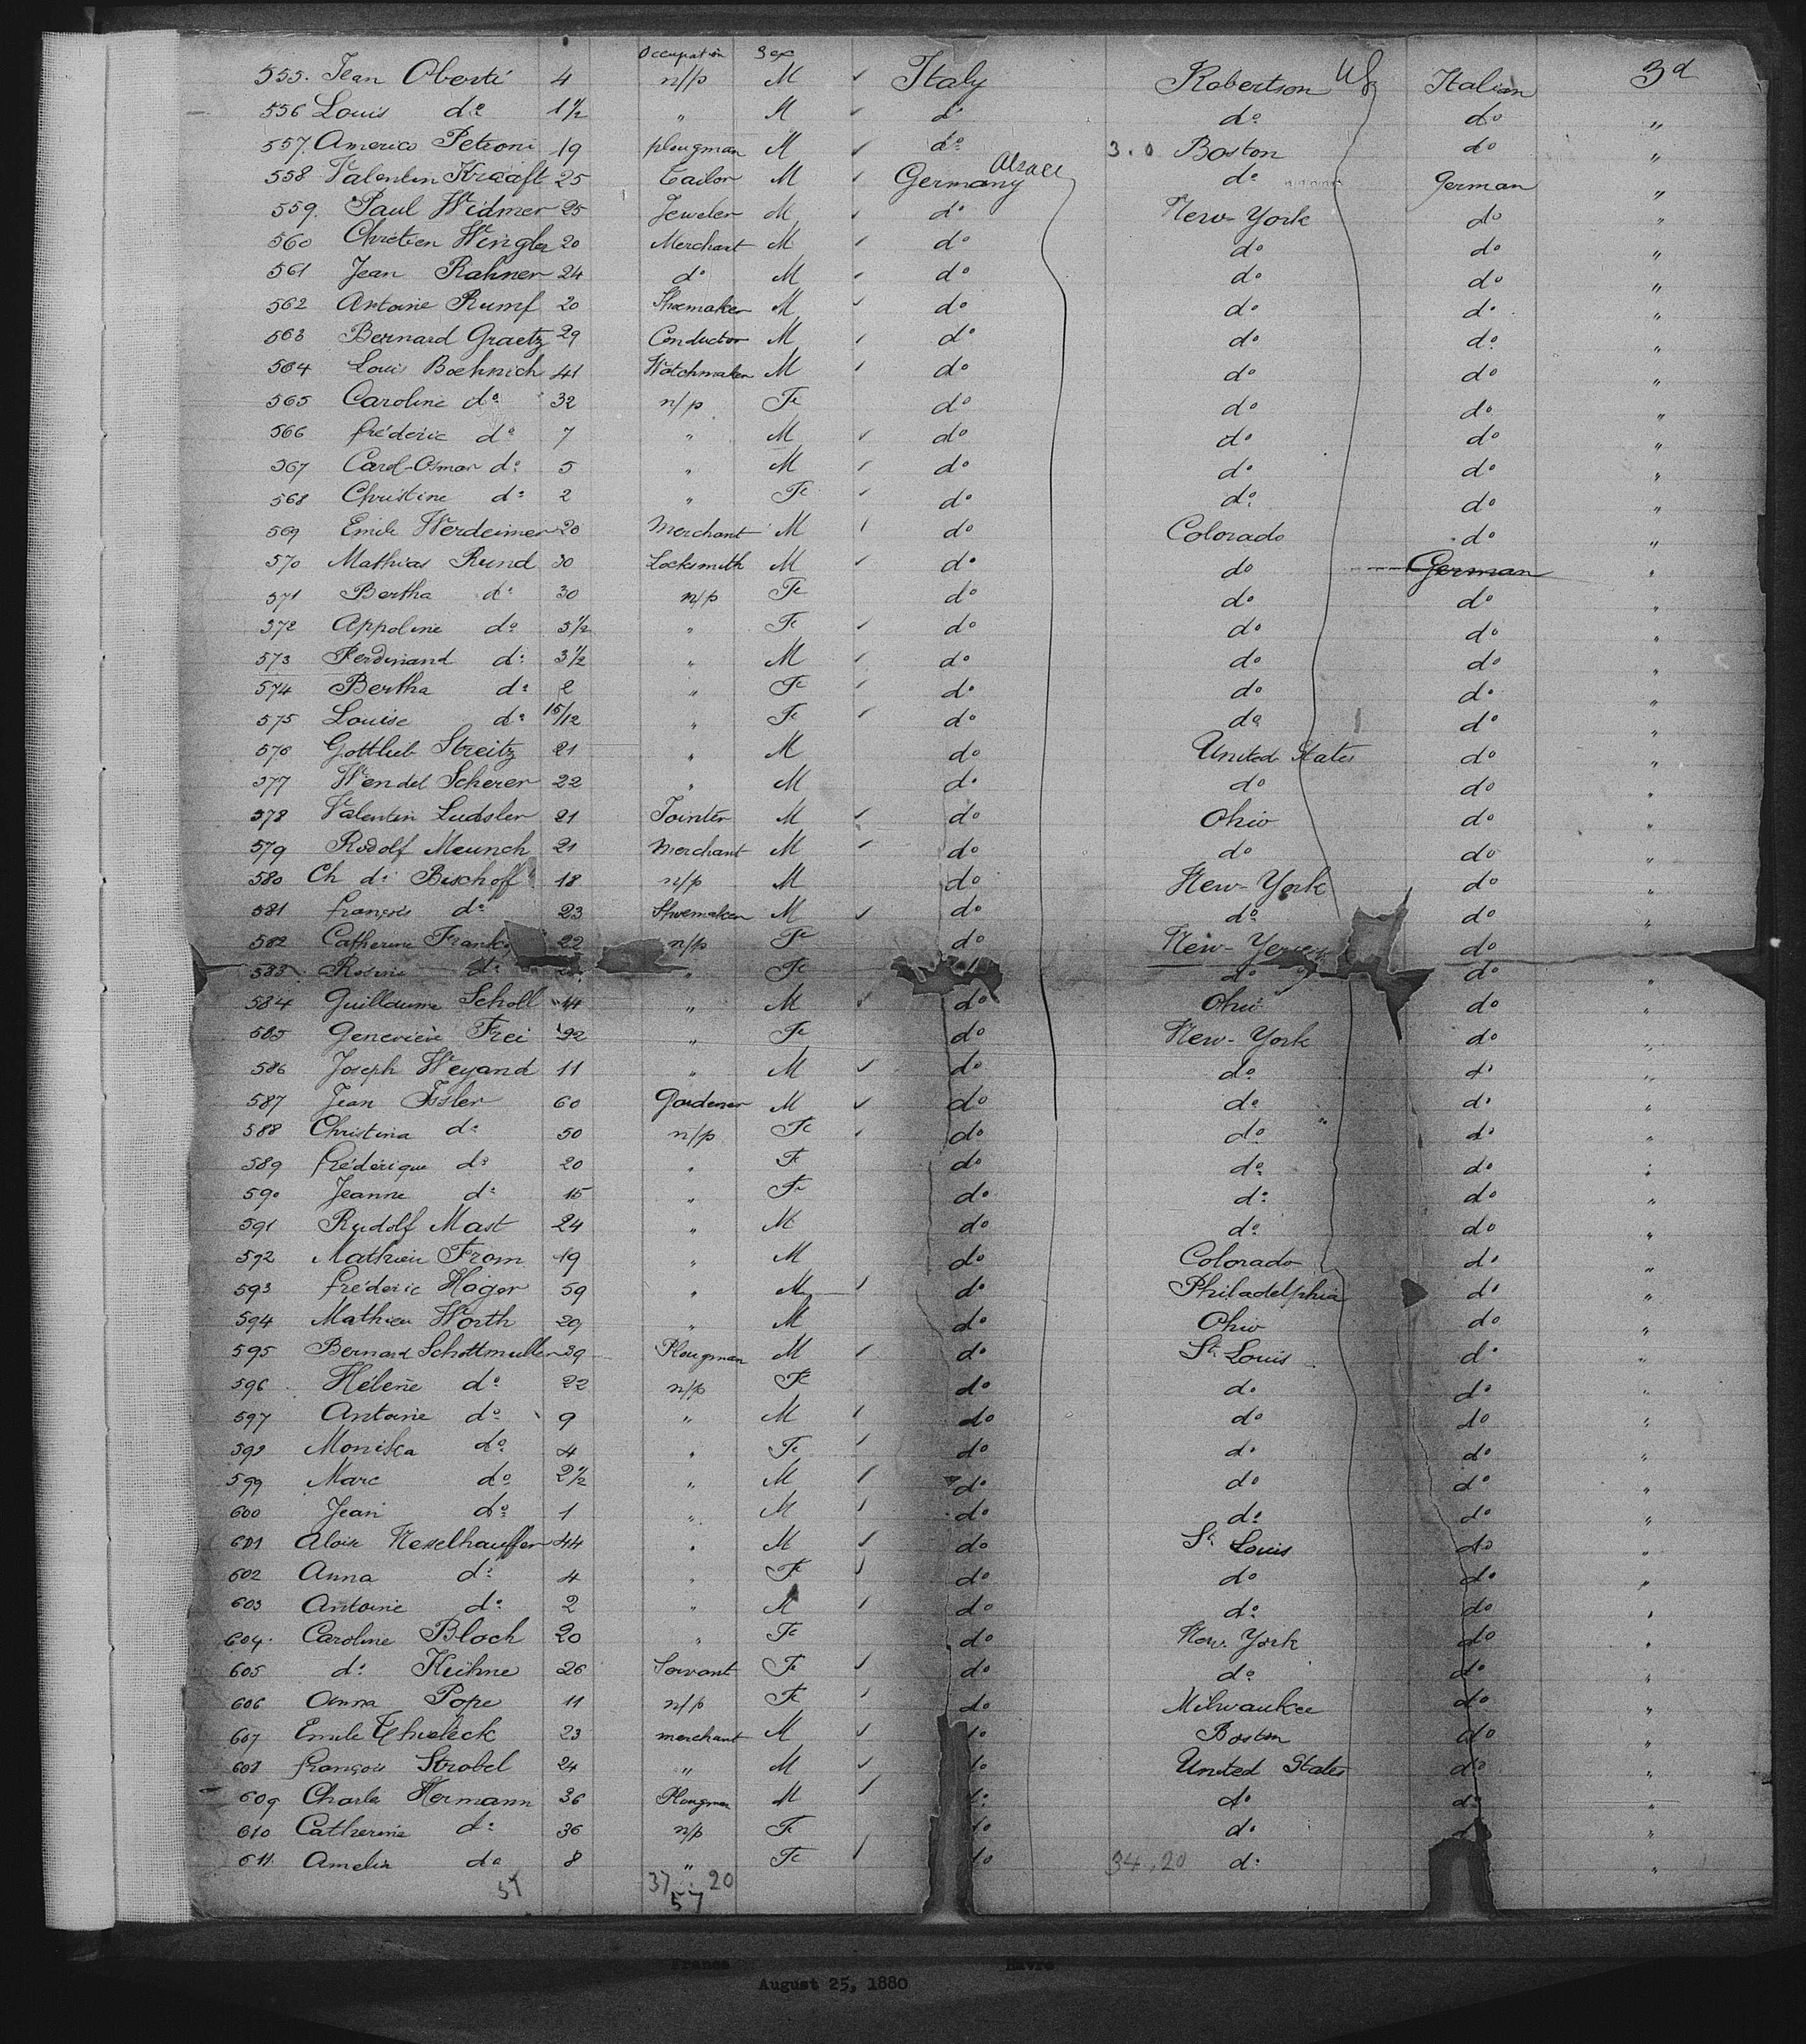 Occupation Sex
555. Jean Oberti 4 n/p M ✓ Italy Robertson US Italian 3d
556 Louis do 1 1/2 " M ✓ do do do "
557. Americo Petroni 19 plougman M ✓ do 3.0 Boston do "
558 Valentin Kraaft 25 tailor M ✓ Germany Alsace do German "
559. Paul Widmer 25 Jeweler M ✓ do New-York do "
560 Chrétien Wingler 20 Merchant M ✓ do do do "
561 Jean Rahner 24 do M ✓ do do do "
562 Antoine Rumf 20 Shoemaker M ✓ do do do "
563 Bernard Graetz 29 Conductor M ✓ do do do "
564 Louis Boehnich 41 Watchmaker M ✓ do do do "
565 Caroline do 32 n/p Fe do do do "
566 frédéric do 7 " M ✓ do do do "
567 Carol-Osmar do 5 " M ✓ do do do "
568 Christine do 2 " Fe ✓ do do do "
569 Emile Werdeimer 20 Merchant M ✓ do Colorado do "
570 Mathias Rund 30 Locksmith M ✓ do do German "
571 Bertha do 30 n/p Fe do do do "
572 Appoline do 5 1/2 " Fe ✓ do do do "
573 Ferdinand do 3 1/2 " M ✓ do do do "
574 Bertha do 2 " Fe ✓ do do do "
575 Louise do 15/12 " Fe ✓ do do do "
576 Gottlieb Streitz 21 " M do United States do "
577 Wendel Scherer 22 " M do do do "
578 Valentin Ludsler 21 Jointer M ✓ do Ohio do "
579 Rodolf Meunch 21 Merchant M ✓ do do do "
580 Ch di Bischoff 18 n/p M do New-York do "
581 françois do 23 Shoemaker M ✓ do do do "
582 Catherine Frank 22 n/p Fe do New-Yersey do "
583 Rosine do " Fe do do "
584 Guillaume Scholl 14 " M ✓ do Ohio do "
585 Geneviève Frei 22 " Fe do New-York do "
586 Joseph Weyand 11 " M ✓ do do do "
587 Jean Issler 60 Gardener M ✓ do do do "
588 Christina do 50 n/p Fe ✓ do do do "
589 frédérique do 20 " F do do do "
590 Jeanne do 15 " Fe do do do "
591 Rudolf Mast 24 " M do do do "
592 Mathieu From 19 " M do Colorado do "
593 frédéric Hager 59 " M ✓ do Philadelphia do "
594 Mathieu Worth 29 " M do Ohio do "
595 Bernard Schottmuller 39 Plougman M ✓ do St Louis do "
596 Hélène do 22 n/p Fe do do do "
597 Antoine do 9 " M ✓ do do do "
598 Monika do 4 " Fe ✓ do do do "
599 Marc do 2 1/2 " M ✓ do do do "
600 Jean do 1 " M ✓ do do do "
601 Alois Nesselhauffer 44 " M ✓ do St Louis do "
602 Anna do 4 " Fe ✓ do do do "
603 Antoine do 2 " M ✓ do do do "
604. Caroline Bloch 20 " Fe do New-York do "
605 do Kühne 26 Servant Fe ✓ do do do "
606 Anna Pope 11 n/p Fe ✓ do Milwaukee do "
607 Emile 23 merchant M ✓ do Boston do "
608 françois Strobel 24 " M ✓ do United States do "
609 Charles Hermann 36 Plougman M ✓ do do do "
610 Catherine do 36 n/p Fe do do "
611. Amelia do 8 " Fe ✓ do 34,20 do "
57 37 . 20
57
France Havre
August 25, 1880